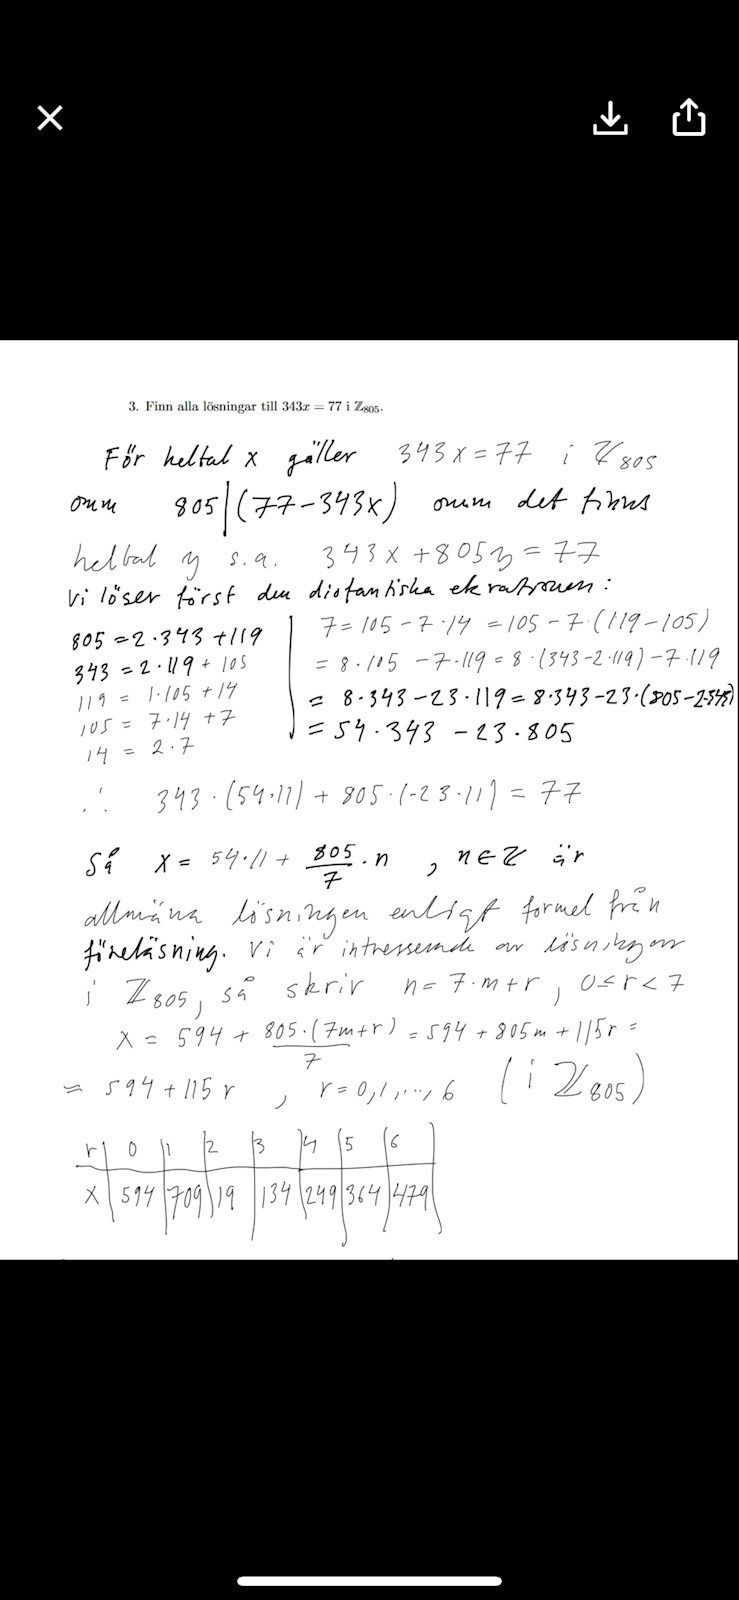 3. Finn alla lösningar till 343x = 77 i ℤ₈₀₅.
För heltal x gäller 343x = 77 i ℤ₈₀₅
omm 805|(77-343x) omm det finns
heltal y s.a. 343x + 805y = 77
Vi löser först den diofantiska ekvationen:
805 = 2·343 + 119
343 = 2·119 + 105
119 = 1·105 + 14
105 = 7·14 + 7
14 = 2·7
7 = 105 - 7·14 = 105 - 7·(119-105)
= 8·105 - 7·119 = 8·(343-2·119) - 7·119
= 8·343 - 23·119 = 8·343 - 23·(805-2·343)
= 54·343 - 23·805
∴ 343·(54·11) + 805·(-23·11) = 77
Så x = 54·11 + 805/7 · n , n ∈ ℤ är
allmäna lösningen enligt formel från
föreläsning. Vi är intresserade av lösningar
i ℤ₈₀₅, så skriv n = 7·m + r , 0 ≤ r < 7
x = 594 + 805·(7m+r)/7 = 594 + 805m + 115r =
= 594 + 115r , r = 0,1,...,6 (i ℤ₈₀₅)
r | 0 | 1 | 2 | 3 | 4 | 5 | 6
x | 594 | 709 | 19 | 134 | 249 | 364 | 479